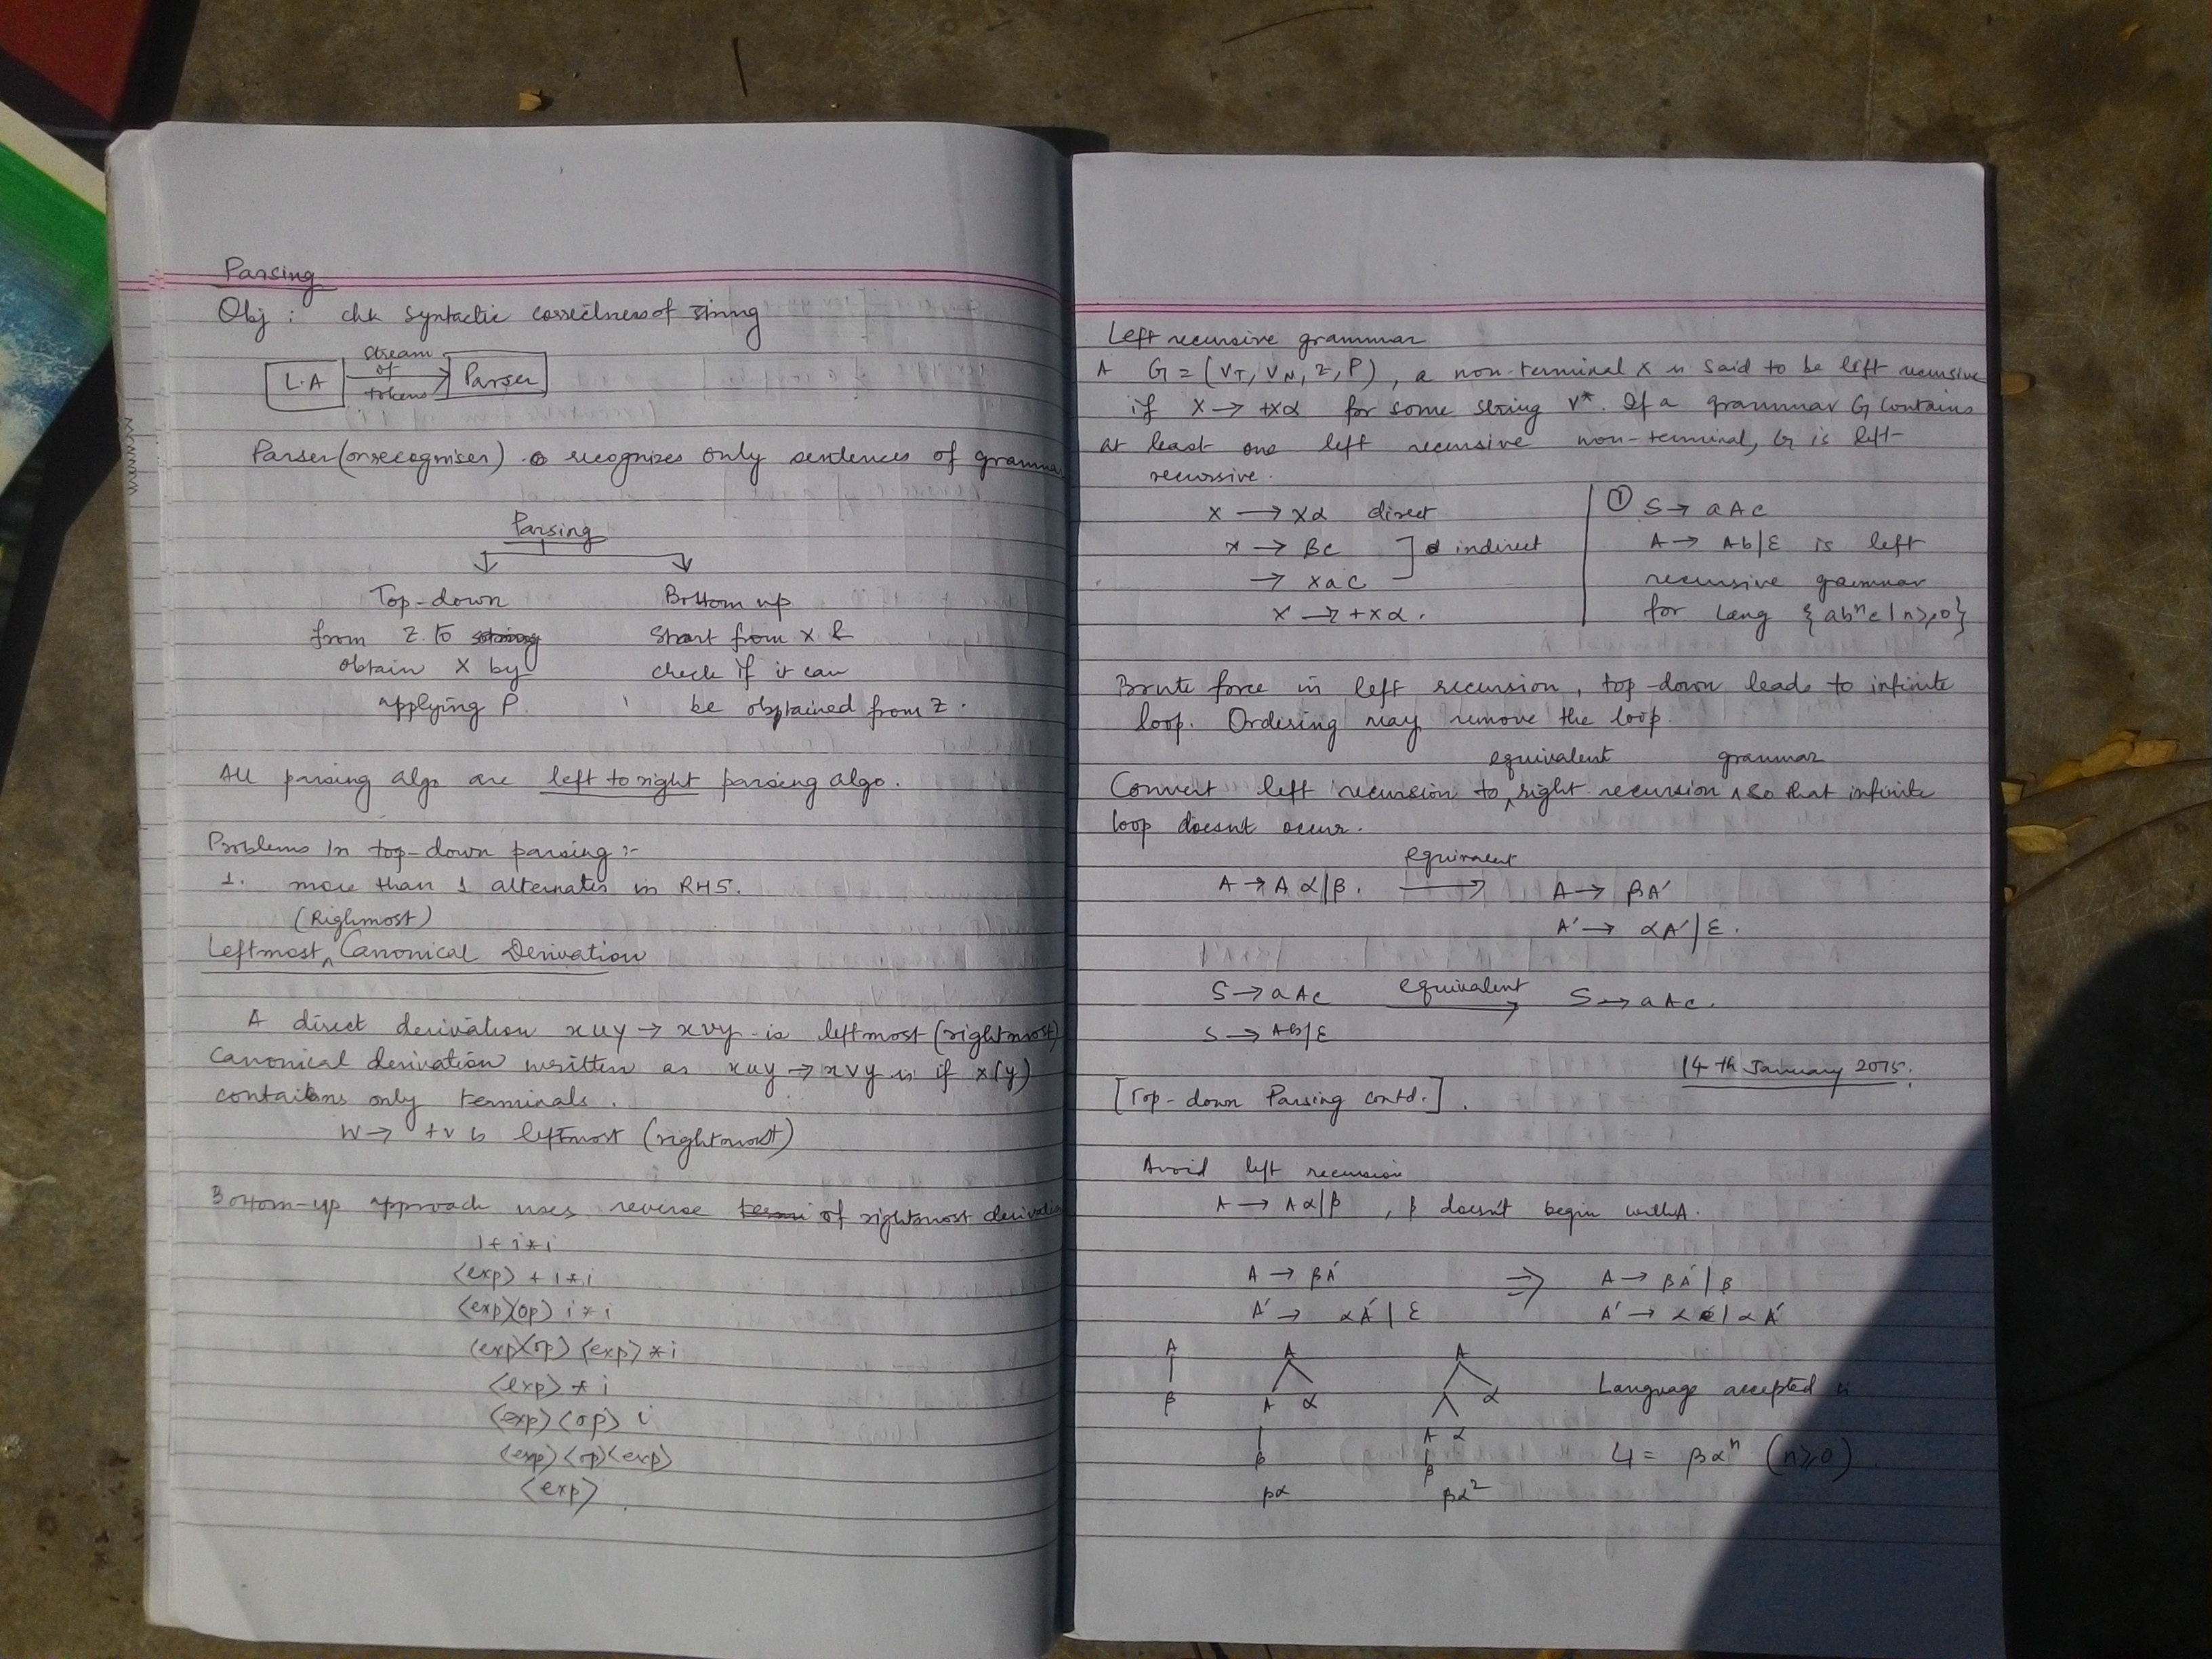 Parsing
Obj : chk syntactic correctness of string
L.A stream of tokens → Parser
Parser (or recogniser) recognises only sentences of grammar
Parsing
Top-down Bottom up
from Z to string Start from x &
obtain x by check if it can
applying P be obtained from Z.
All parsing algo are left to right parsing algo.
Problems in top-down parsing :-
1. more than 1 alternates in RHS.
(Rightmost)
Leftmost ^ Canonical Derivation
A direct derivation xuy → xvy is leftmost (rightmost)
Canonical derivation written as xuy → xvy is if x(y)
contains only terminals.
W → +v is leftmost (rightmost)
Bottom-up approach uses reverse of rightmost derivation
i + i * i
<exp> + i * i
<exp><op> i * i
<exp><op><exp> * i
<exp> * i
<exp> <op> i
<exp> <op><exp>
<exp>
Left recursive grammar
A G = (VT, VN, Z, P), a non-terminal X is said to be left recursive
if X → +Xα for some string V*. If a grammar G contains
at least one left recursive non-terminal, G is left
recursive.
X → Xα direct
X → Bc ] indirect
→ Xac
X → +Xα.
① S → aAc
A → Ab|ε is left
recursive grammar
for lang {abⁿc | n≥0}
Brute force in left recursion, top-down leads to infinite
loop. Ordering may remove the loop.
equivalent grammar
Convert left recursion to ^ right recursion, so that infinite
loop doesnt occur.
A → Aα|β. equivalent ⟶ A → βA'
A' → αA'|ε.
S → aAc equivalent → S → aAc.
S → Ab|ε
14th January 2015.
[Top-down Parsing contd.].
Avoid left recursion
A → Aα|β , β doesnt begin with A.
A → βA' ⇒ A → βA'|β
A' → αA'|ε A' → α|αA'
A A A
β A α A α Language accepted is
β A α L = βαⁿ (n≥0).
β
βα βα²